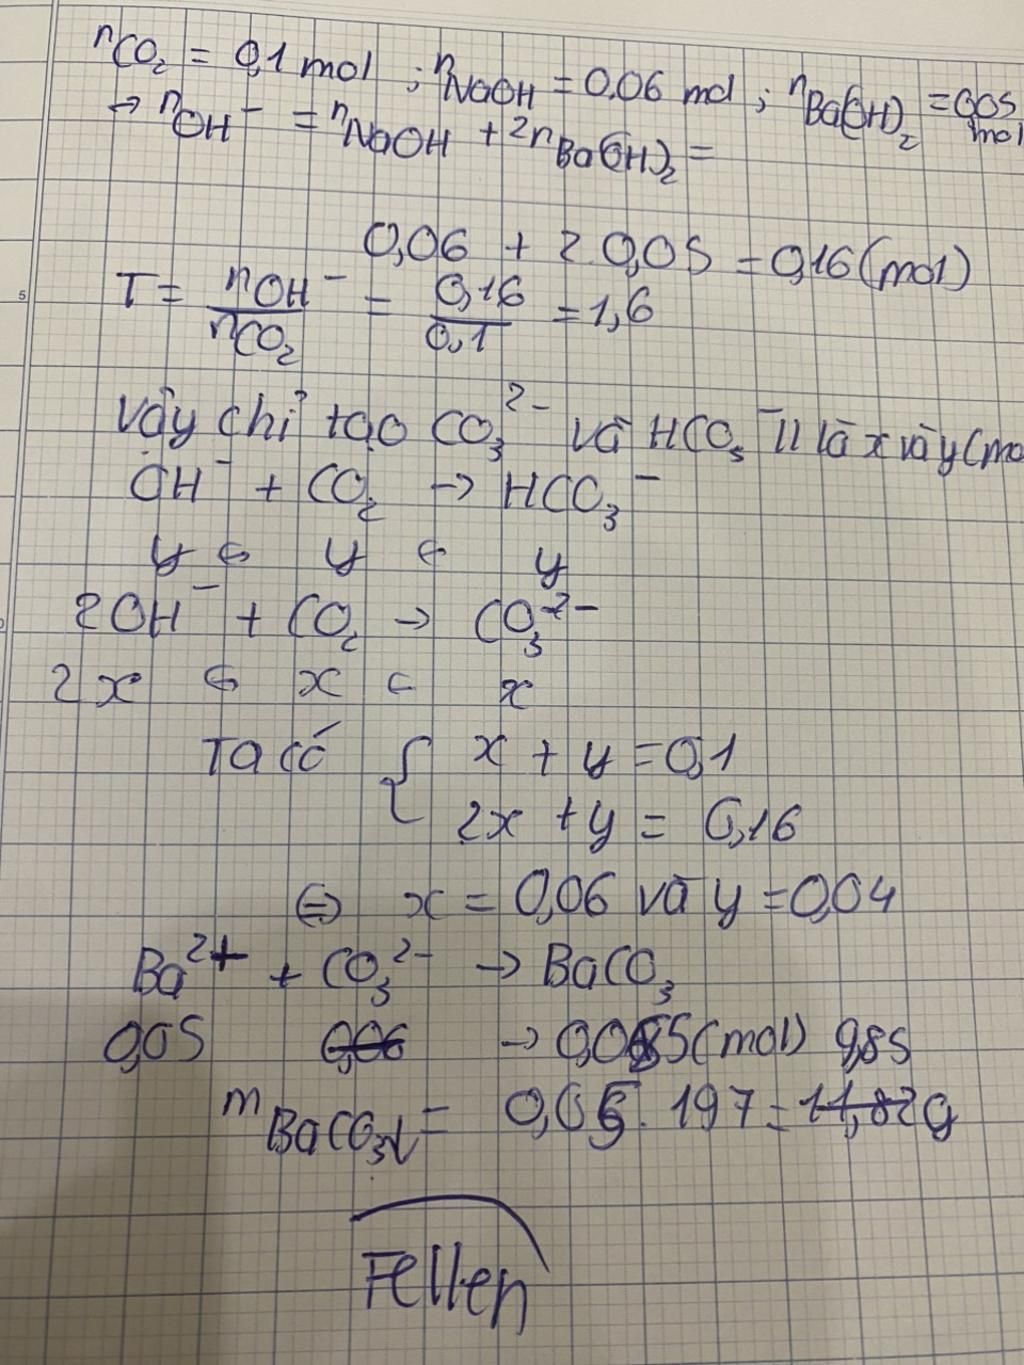 nCO₂ = 0,1 mol ; nNaOH = 0.06 mol ; nBa(OH)₂ = 0,05 mol
→ nOH⁻ = nNaOH + 2nBa(OH)₂ =
0,06 + 2.0,05 = 0,16 (mol)
T = nOH⁻/nCO₂ = 0,16/0,1 = 1,6
Vậy chỉ tạo CO₃²⁻ và HCO₃⁻ là x và y (mo
OH⁻ + CO₂ → HCO₃⁻
y ← y ← y
2OH⁻ + CO₂ → CO₃²⁻
2x ← x ← x
Ta có { x + y = 0,1
2x + y = 0,16
⇔ x = 0,06 và y = 0,04
Ba²⁺ + CO₃²⁻ → BaCO₃
0,05 0,06 → 0,05 (mol) 9,85
mBaCO₃↓ = 0,05. 197 = 11,82 g
Fellen